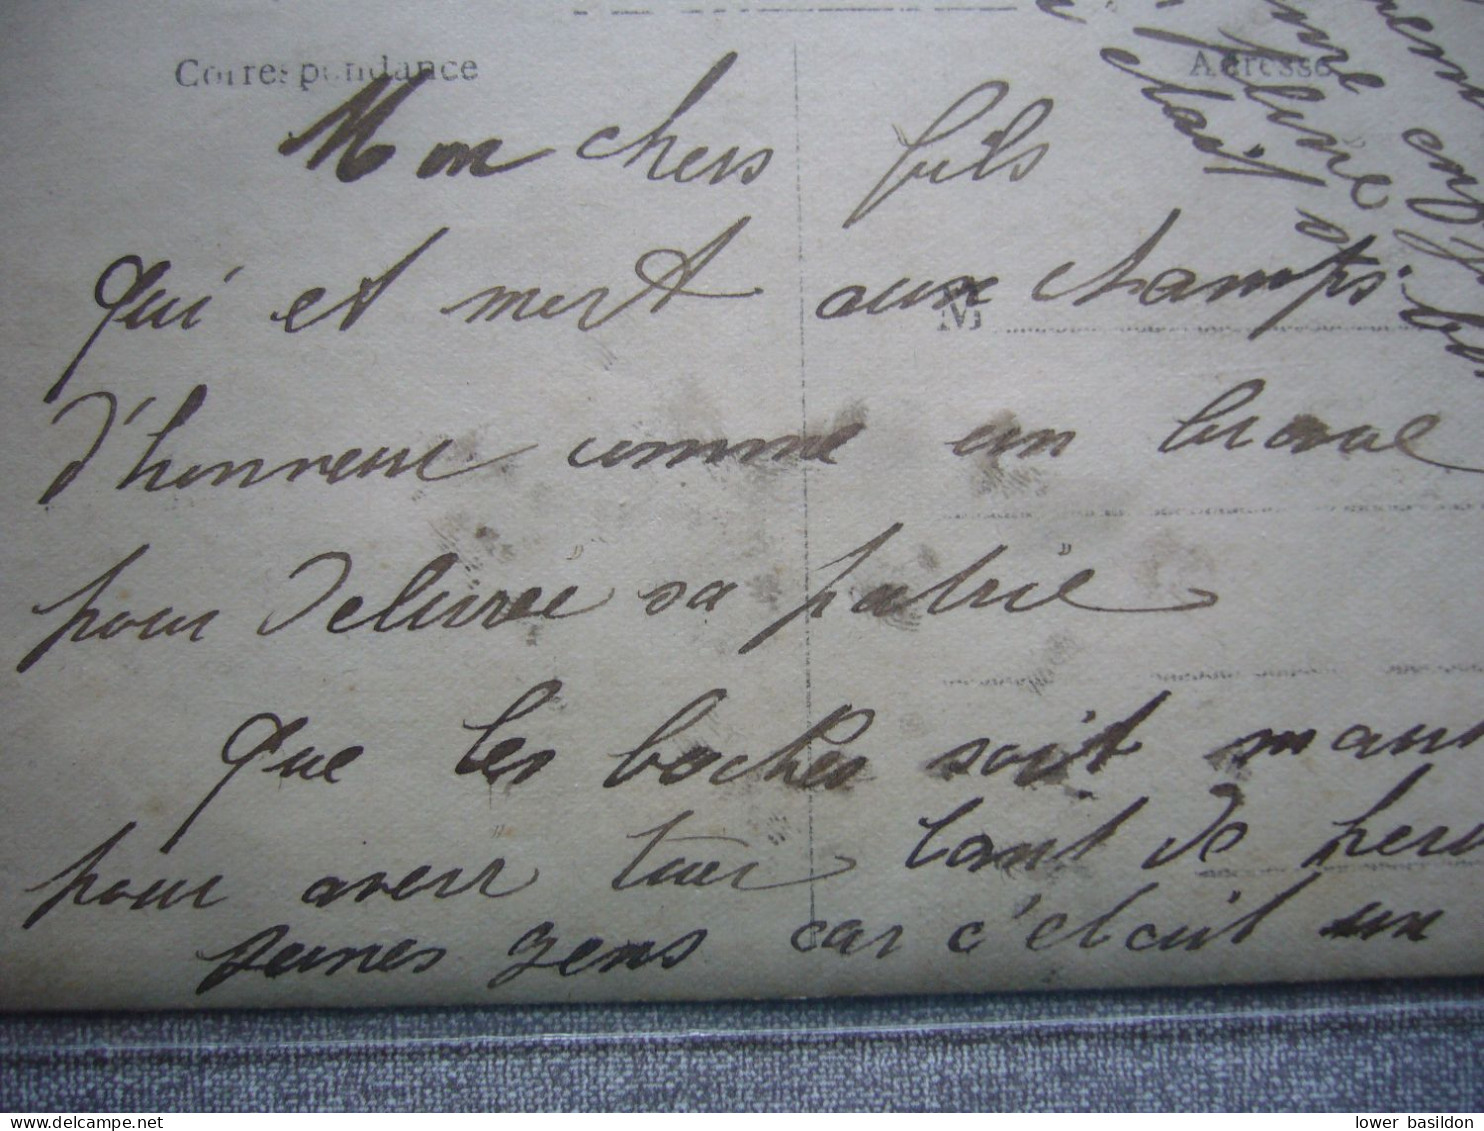 Correspondance
Adresse
Mon chers fils
qui et mort aux champs
M
d'honneur comme un brave
pour delivré sa patrie
que les boches soit
pour avoir tuer tant de
jeunes gens car c'etait un
etait
lower basildon